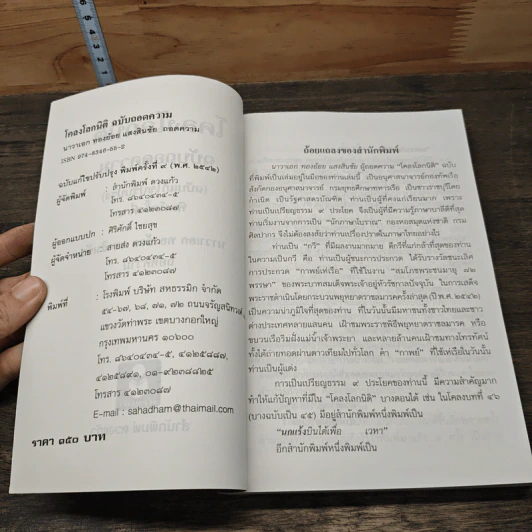 โคลงโลกนิติ ฉบับถอดความ
นาวาเอก ทองย้อย แสงสินชัย ถอดความ
ISBN 974-8346-68-2
ฉบับแก้ไขปรับปรุง พิมพ์ครั้งที่ ๙ (พ.ศ. ๒๕๔๒)
ผู้จัดพิมพ์ : สำนักพิมพ์ ดวงแก้ว
โทร. ๘๖๔๐๔๓๔-๕
โทรสาร ๔๑๒๓๐๘๗
ผู้ออกแบบปก : ศิริศักดิ์ ไชยสุข
ผู้จัดจำหน่าย : สายส่ง ดวงแก้ว
โทร. ๘๖๔๐๔๓๔-๕,
โทรสาร ๔๑๒๓๐๘๗
พิมพ์ที่ : โรงพิมพ์ บริษัท สหธรรมิก จำกัด
๕๔-๖๗, ๖๘, ๗๑, ๗๒ ถนนจรัญสนิทวงศ์
แขวงวัดท่าพระ เขตบางกอกใหญ่
กรุงเทพมหานคร ๑๐๖๐๐
โทร. ๘๖๔๐๔๓๔-๕, ๔๑๒๕๘๘๗,
๔๑๒๕๘๙๑, ๐๑-๙๒๓๘๘๒๕
โทรสาร ๔๑๒๓๐๘๗
E-mail : sahadham@thaimail.com
ราคา ๑๕๐ บาท
ถ้อยแถลงของสำนักพิมพ์
นาวาเอก ทองย้อย แสงสินชัย ผู้ถอดความ "โคลงโลกนิติ" ฉบับ
ที่พิมพ์เป็นเล่มอยู่ในมือของท่านเล่มนี้ เป็นอนุศาสนาจารย์กองทัพเรือ
สังกัดกองอนุศาสนาจารย์ กรมยุทธศึกษาทหารเรือ เป็นชาวราชบุรีโดย
กำเนิด เป็นรัฐศาสตรบัณฑิต ท่านเป็นผู้ที่คงแก่เรียนมาก เพราะ
ท่านเป็นเปรียญธรรม ๙ ประโยค จึงเป็นผู้ที่มีความรู้ภาษาบาลีดีที่สุด
ท่านเริ่มงานจากการเป็น "นักภาษาโบราณ" กองหอสมุดแห่งชาติ กรม
ศิลปากร จึงไม่ต้องสงสัยว่าท่านเปรื่องปราดในภาษาไทยอย่างไร
ท่านเป็น "กวี" ที่มีผลงานมากมาย ดีกรีที่แก่กล้าที่สุดของท่าน
ในความเป็นกวี คือ ท่านเป็นผู้ชนะการประกวด ได้รับรางวัลชนะเลิศ
การประกวด "กาพย์เห่เรือ" ที่ใช้ในงาน "สมโภชพระชนมายุ ๗๒
พรรษา" ของพระบาทสมเด็จพระเจ้าอยู่หัวรัชกาลปัจจุบัน ในการเสด็จ
พระราชดำเนินโดยกระบวนพยุหยาตราชลมารคครั้งล่าสุด (ปี พ.ศ. ๒๕๔๒)
เป็นความน่าภูมิใจที่สุดของท่าน ที่ในวันนั้นมีมหาชนทั้งชาวไทยและชาว
ต่างประเทศหลายแสนคน เฝ้าชมพระราชพิธีพยุหยาตราชลมารค หรือ
ขบวนเรือริมฝั่งแม่น้ำเจ้าพระยา และหลายล้านคนเฝ้าชมทางโทรทัศน์
ทั้งได้ถ่ายทอดผ่านดาวเทียมไปทั่วโลก ค่า "กาพย์" ที่ใช้เห่เรือในวันนั้น
ท่านเป็นผู้แต่ง
การเป็นเปรียญธรรม ๙ ประโยคของท่านนี้ มีความสำคัญมาก
ทำให้แก้ปัญหาที่มีใน "โคลงโลกนิติ" บางตอนได้ เช่น ในโคลงบทที่ ๔๖
(บางฉบับเป็น ๔๕) มีอยู่สำนักพิมพ์หนึ่งพิมพ์เป็น
"นกแร้งบินได้เพื่อ เวหา"
อีกสำนักพิมพ์หนึ่งพิมพ์เป็น